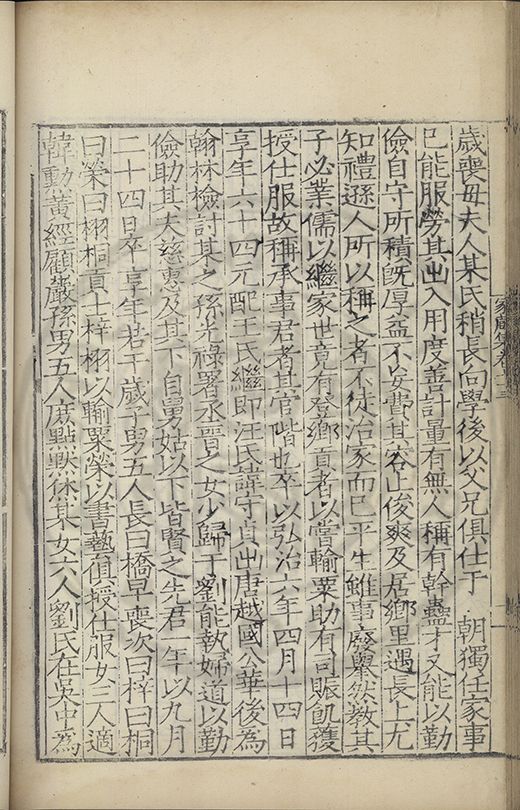 歲喪母夫人某氏稍長向學後以父兄俱仕于　朝獨任家事
已能服勞其出入用度善計量有無人稱有幹蠱才又能以勤
儉自守所積既厚益不妄費其容止俊爽及居鄉里遇長上尤
知禮遜人所以稱之者不徒治家而已平生雖事廢舉然教其
子必業儒以繼家世竟有登鄉貢者以嘗輸粟助有司賑飢獲
授仕服故稱承事君者其官階也卒以弘治六年四月十四日
享年六十四元配王氏繼即汪氏諱守貞出唐越國公華後為
翰林檢討某之孫光祿署丞晉之女少歸于劉能執婦道以勤
儉助其夫慈惠及其下自舅姑以下皆賢之先君一年以九月
二十四日卒享年若干歲子男五人長曰橋早喪次曰梓曰桐
曰榮曰栩桐貢士梓栩以輸粟榮以書藝俱授仕服女三人適
韓勳黃經顧嚴孫男五人庶點默烋某女六人劉氏在吳中為
家藏集卷